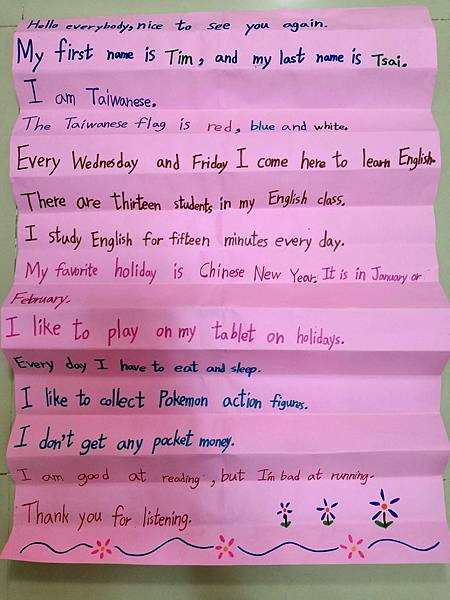 Hello everybody, nice to see you again.
My first name is Tim, and my last name is Tsai.
I am Taiwanese.
The Taiwanese flag is red, blue and white.
Every Wednesday and Friday I come here to learn English.
There are thirteen students in my English class.
I study English for fifteen minutes every day.
My favorite holiday is Chinese New Year. It is in January or
February.
I like to play on my tablet on holidays.
Every day I have to eat and sleep.
I like to collect Pokemon action figures.
I don't get any pocket money.
I am good at reading, but I'm bad at running.
Thank you for listening.